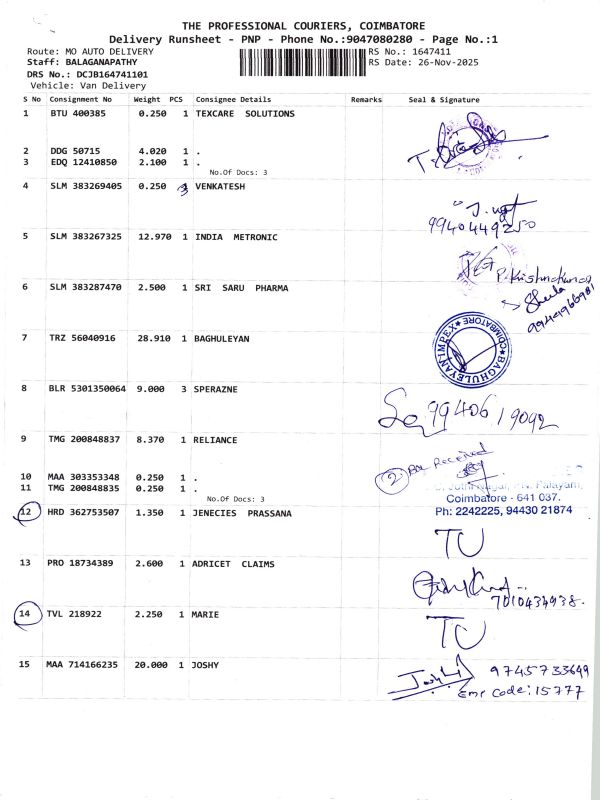 THE PROFESSIONAL COURIERS, COIMBATORE
Delivery Runsheet - PNP - Phone No.:9047080280 - Page No.:1
Route: MO AUTO DELIVERY RS No.: 1647411
Staff: BALAGANAPATHY RS Date: 26-Nov-2025
DRS No.: DCJB164741101
Vehicle: Van Delivery
S No Consignment No Weight PCS Consignee Details Remarks Seal & Signature
1 BTU 400385 0.250 1 TEXCARE SOLUTIONS
2 DDG 50715 4.020 1 .
3 EDQ 12410850 2.100 1 .
No.Of Docs: 3
4 SLM 383269405 0.250 3 VENKATESH
9940449250
5 SLM 383267325 12.970 1 INDIA METRONIC
P. Krishnakumar
6 SLM 383287470 2.500 1 SRI SARU PHARMA
Sheela
9944966981
7 TRZ 56040916 28.910 1 BAGHULEYAN
BAGHULEYAN IMPEX COIMBATORE
8 BLR 5301350064 9.000 3 SPERAZNE
9940619092
9 TMG 200848837 8.370 1 RELIANCE
2. Box Received
10 MAA 303353348 0.250 1 .
11 TMG 200848835 0.250 1 .
Nagar, P.N. Palayam,
Coimbatore - 641 037.
No.Of Docs: 3
12 HRD 362753507 1.350 1 JENECIES PRASSANA
Ph: 2242225, 94430 21874
TU
13 PRO 18734389 2.600 1 ADRICET CLAIMS
7010434938.
14 TVL 218922 2.250 1 MARIE
TU
15 MAA 714166235 20.000 1 JOSHY
Joshy 9745733649
Emp Code: 15777